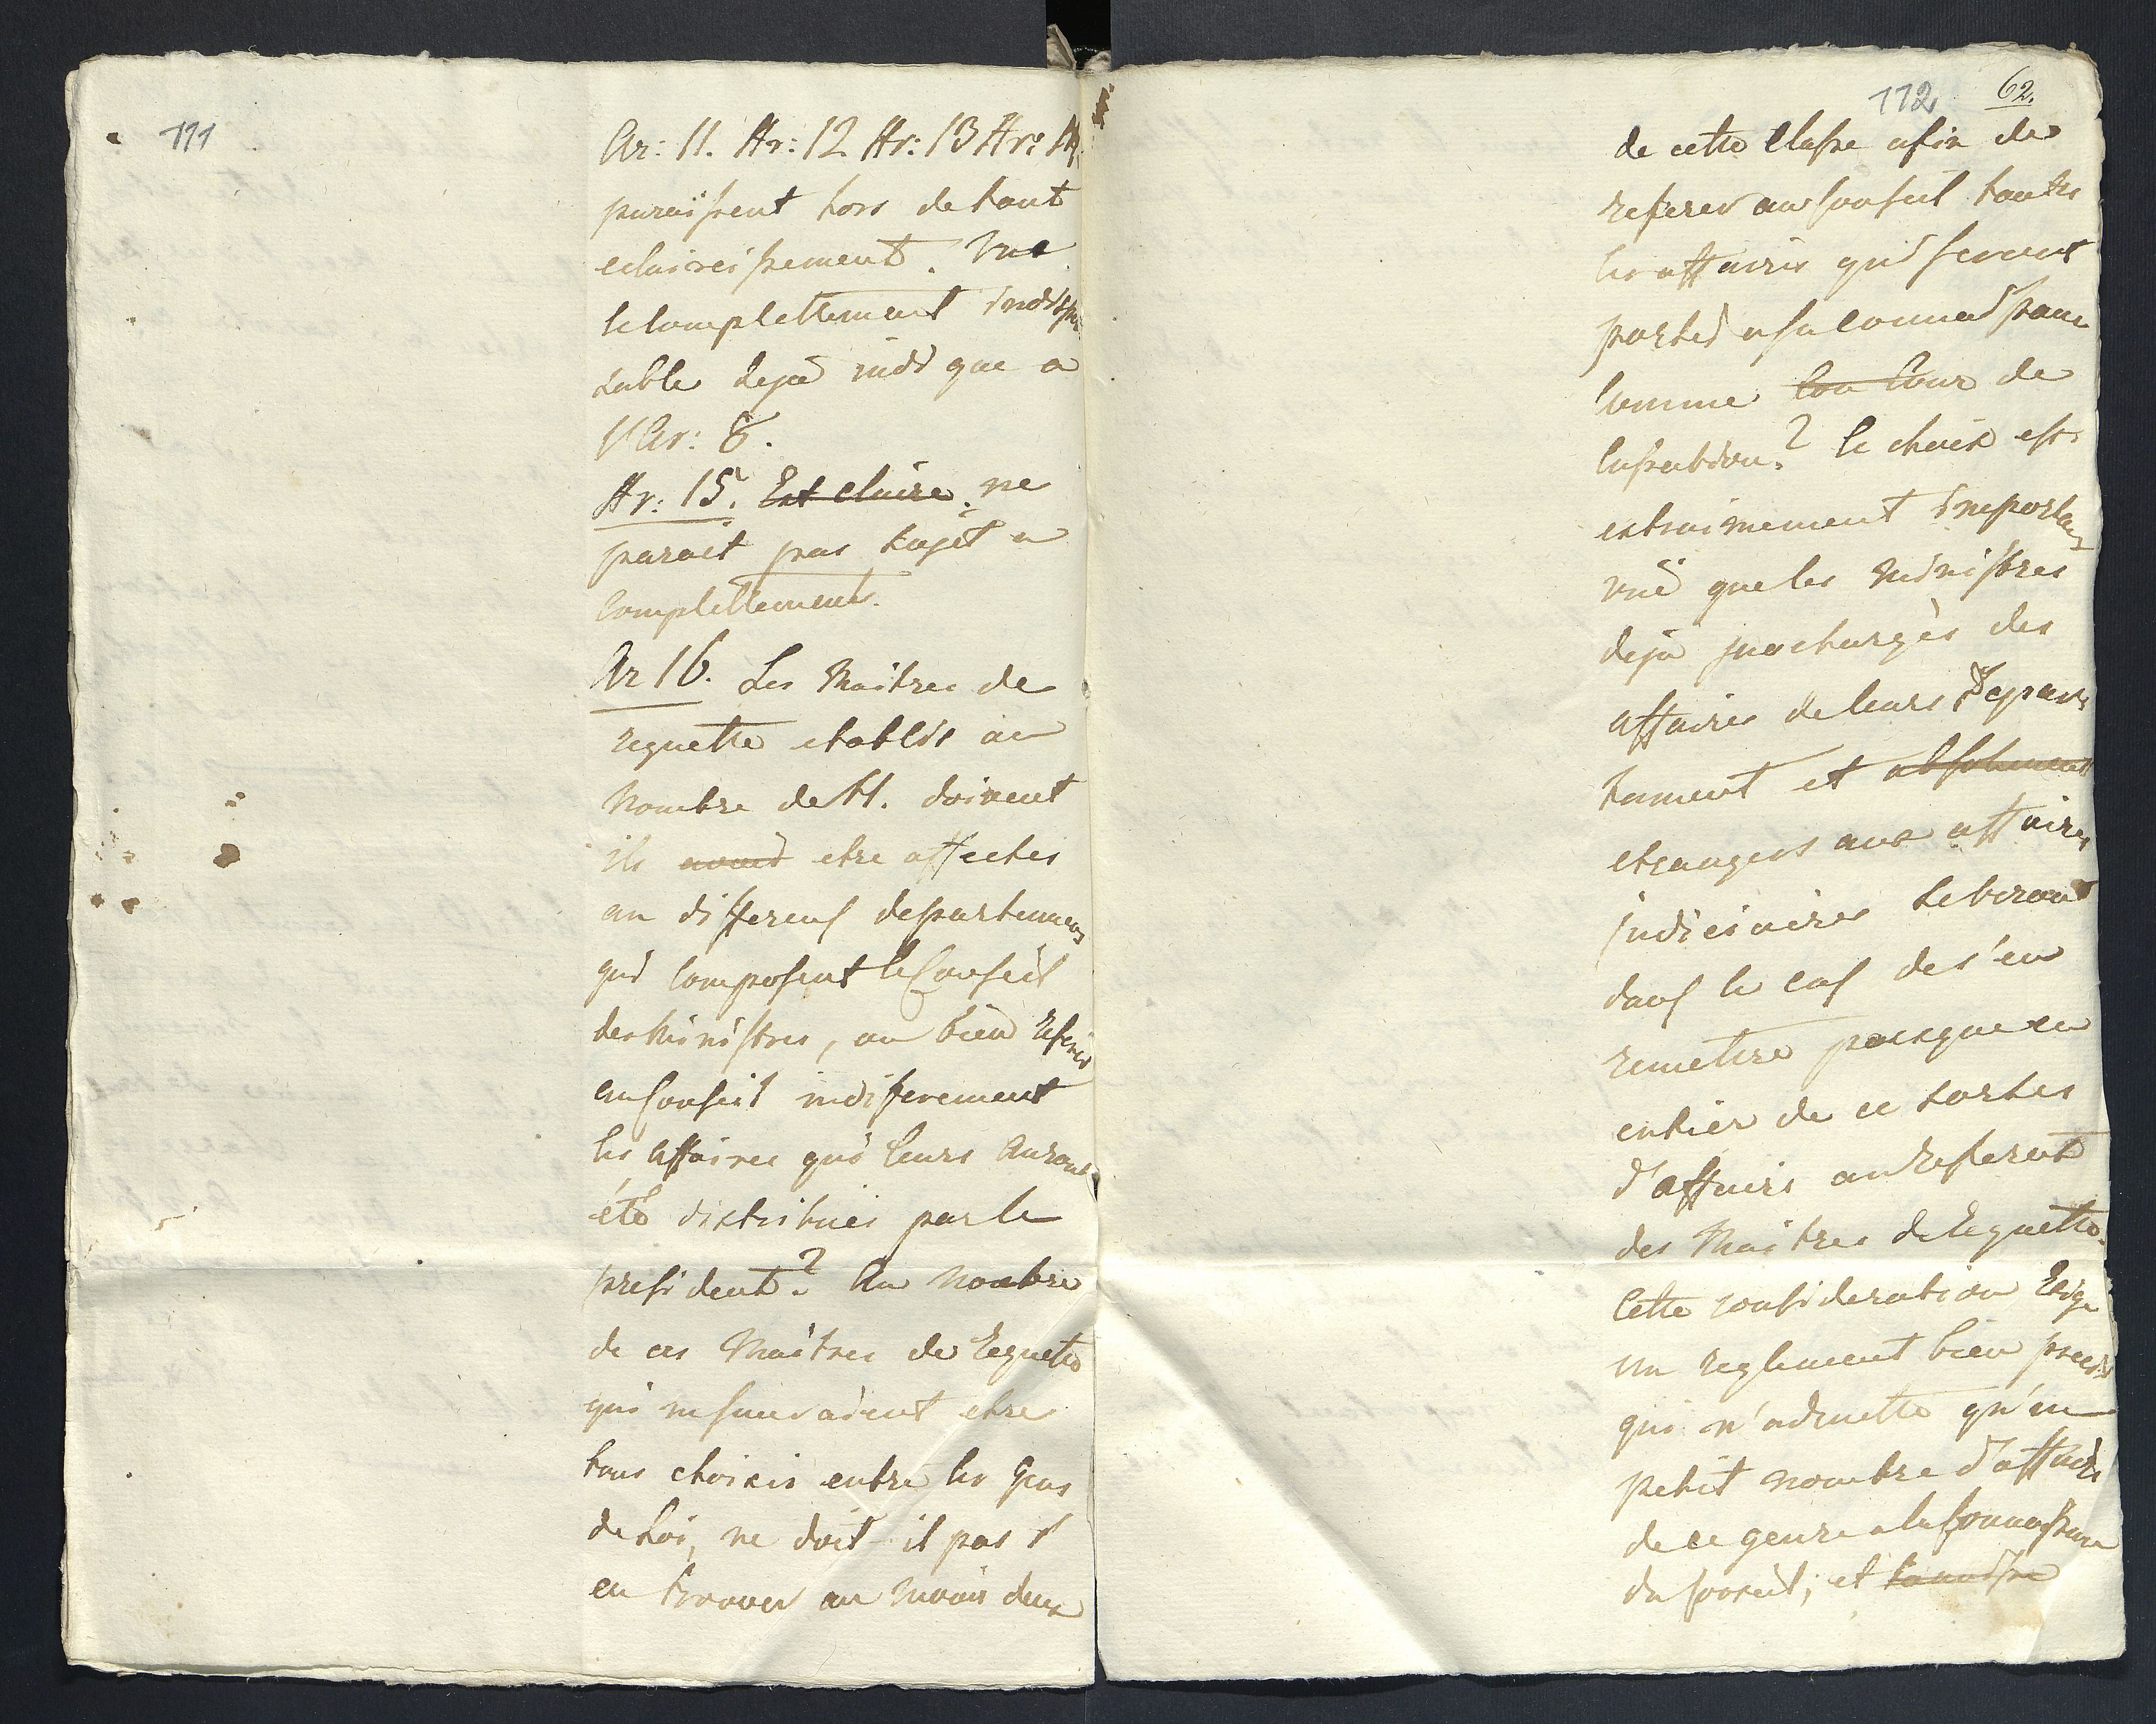 111
Ar: 11. Ar: 12 Ar: 13 Ar: 14.
paraissent hors de tout
eclaircissement. Vue
le complettement indispen
sable deja indique a
l'Ar: 8.
Ar: 15. Est claire. ne
parait pas sujet a
complettement.
Ar 16. Les Maitres de
requette etablis au
Nombre de   doivent
ils  etre affectes
au differens departemens
qui composent le Conseil
des Ministres, ou bien referer
au Conseil indiferement
les affaires qui leurs auront
été distribuées par le
president? Au Nombre
de ces Maitres de Requette
qui ne sauraient etre
tous choisis entre les Gens
de Loi, ne doit-il pas s'
en trouver au moins deux
112 62.
de cette Classe afin de
referer au Conseil toutes
les affaires qui seront
portes a sa Connaissance
Comme Cour de
Cassation? le choix est
extraimement important
vuë que les Ministres
deja surchargés des
affaires de leurs Depar
tement et absolument
etrangers aux affaires
judiciaires seront
dans le cas de s'en
remettre presque en
entier de ce sortes
d'affaires au referent
des Maitres de Requette.
Cette consideration Exige
un reglement bien precis
qui n'admette qu'un
petit nombre d'affaires
de ce genre a la Connaissance
du Conseil; et